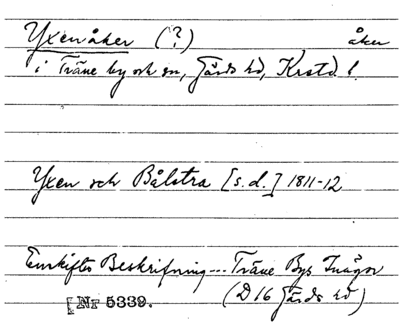 Yxenåker (?) åker
i Träne by och sn, Gärds hd, Krstd l.
Yxen och Bålstra [s.d.] 1811-12
Enskiftes Beskrifning... Träne Bys Inägor
[Nr 5339. (D16 Gärds hd)